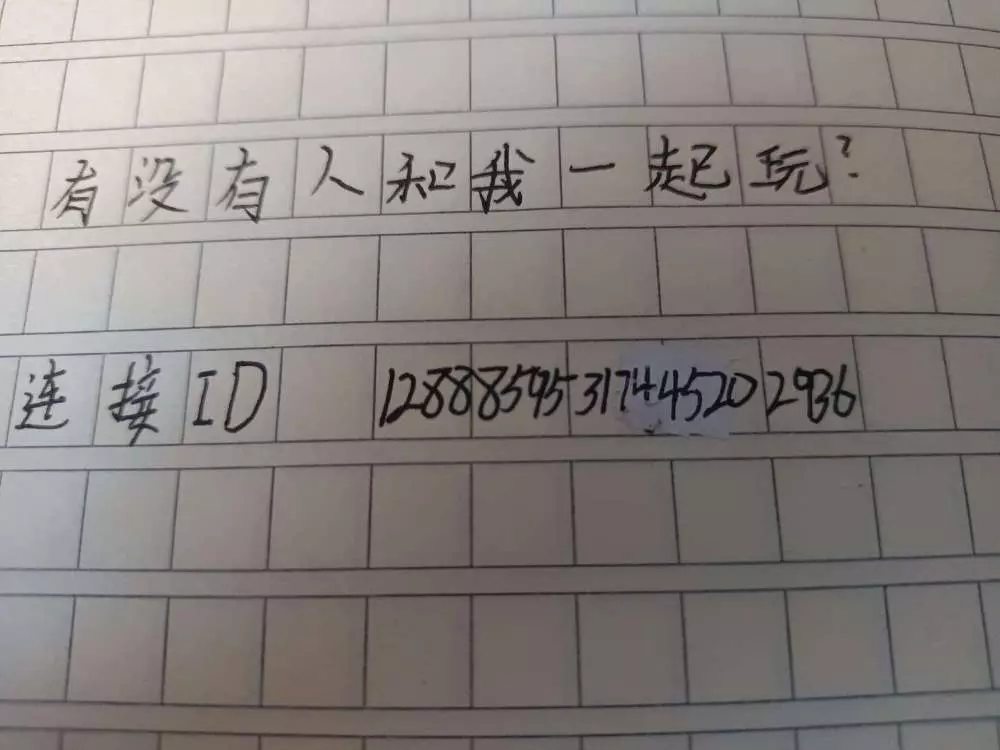 有没有人和我一起玩?
连接ID 12888595317445202936